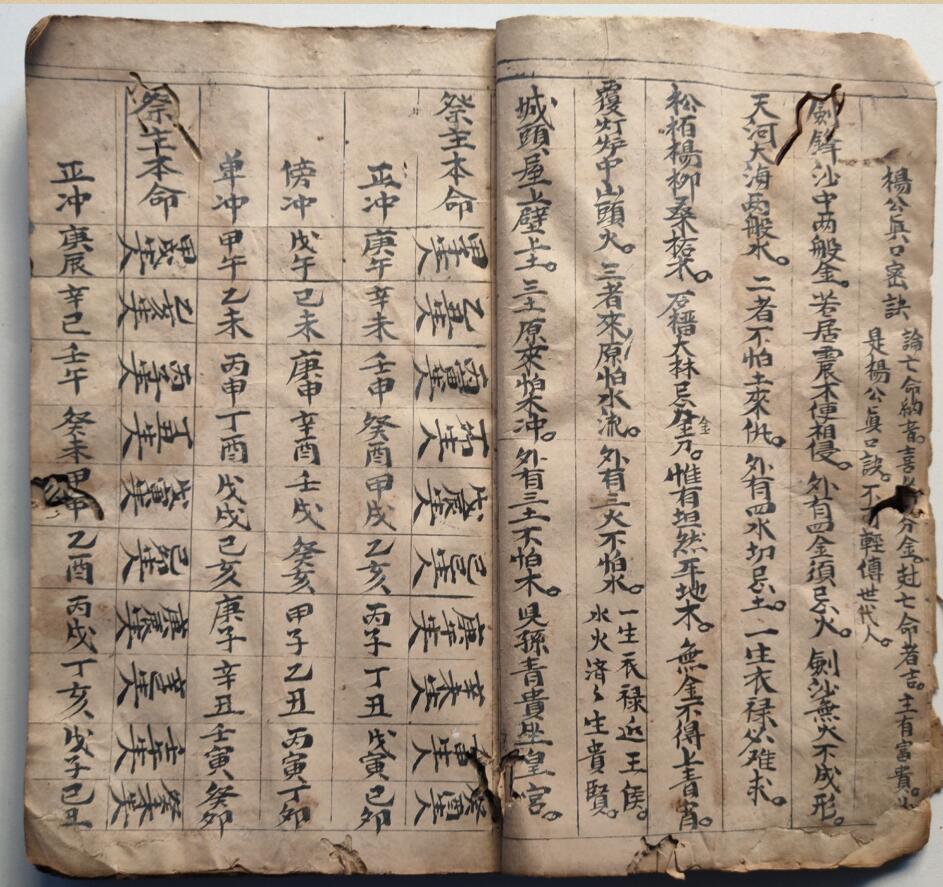 楊公眞口密訣
論亡命納音。喜分金。赴亡命者吉。主有富貴。
是楊公眞口訣。不可輕傳世代人。
劍鋒沙中両般金。若居震木便相侵。外有四金須忌火。劍沙無火不成形。
天河大海両般水。二者不怕土來仇。外有四水切忌土。一生衣禄必难求。
松栢楊柳桑柘木。石榴大林忌金刀。惟有坦然平地木。無金不得上青霄。
覆灯炉中山頭火。三者來原怕水流。外有三火不怕水。一生衣禄近王侯。
水火済々生貴賢。
城頭屋上壁上土。三土原來怕木冲。外有三土不怕木。児孫青貴坐皇宫。
祭主本命 甲子生人 乙丑生人 丙寅生人 丁卯生人 戊辰生人 己巳生人 庚午生人 辛未生人 壬申生人 癸酉生人
正冲 庚午 辛未 壬申 癸酉 甲戌 乙亥 丙子 丁丑 戊寅 己卯
傍冲 戊午 己未 庚申 辛酉 壬戌 癸亥 甲子 乙丑 丙寅 丁卯
単冲 甲午 乙未 丙申 丁酉 戊戌 己亥 庚子 辛丑 壬寅 癸卯
祭主本命 甲戌生人 乙亥生人 丙子生人 丁丑生人 戊寅生人 己卯生人 庚辰生人 辛巳生人 壬午生人 癸未生人
正冲 庚辰 辛巳 壬午 癸未 甲申 乙酉 丙戌 丁亥 戊子 己丑